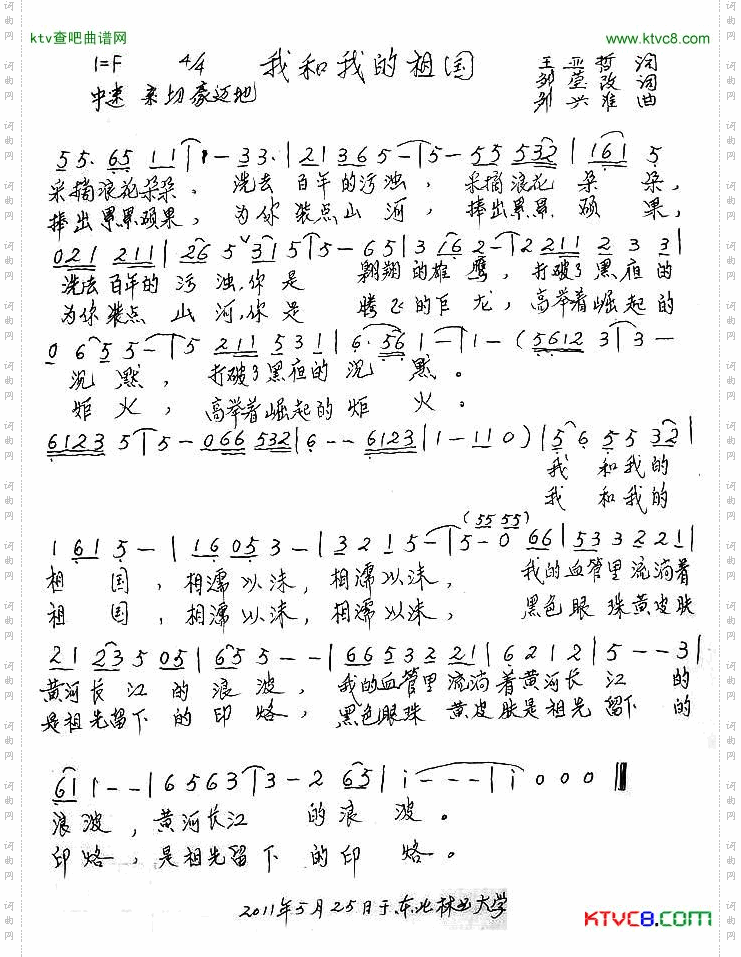 ktv查吧曲谱网
www.ktvc8.com
1=F 4/4 我和我的祖国 王亚哲 词
邹莹改词
中速 亲切豪迈地 邹兴淮 曲
5 5· 6 5 1 1 | 1 - 3 3· | 2 1 3 6 5 - | 5 - 5 5 5 3 2 | 1 6 1 5
采摘浪花朵朵。 洗去 百年的污浊， 采摘浪花 朵 朵，
捧出累累硕果， 为你 装点山 河， 捧出累累 硕 果，
0 2 1 2 1 1 | 2 6 5 ˅ 3 1 5 | 5 - 6 5 | 3 1 6 2 - | 2 2 1 1 2 3 3 |
洗去百年的 污 浊，你 是 翱翔的雄 鹰， 打破了黑夜的
为你装点 山 河，你 是 腾飞的巨 龙， 高举着崛起的
0 6 5 5 - | 5 2 1 1 5 3 1 | 6· 5 6 1 - | 1 - ( 5 6 1 2 3 | 3 -
沉 默， 打破了黑夜的 沉 默。
炬 火， 高举着崛起的 炬 火。
6 1 2 3 5 | 5 - 0 6 6 5 3 2 | 6 - - 6 1 2 3 | 1 - 1 1 0 ) | 5 6 5 5 3 2 |
我 和我的
我 和我的
(5 5 5 5)
1 6 1 5 - | 1 6 0 5 3 - | 3 2 1 5 - | 5 - 0 6 6 | 5 3 3 2 2 1 |
祖 国， 相濡以沫， 相濡以沫， 我的血管里流淌着
祖 国， 相濡以沫， 相濡以沫， 黑色眼珠黄皮肤
2 1 2 3 5 0 5 | 6 5 5 - - | 6 6 5 3 2 2 1 | 6 2 1 2 | 5 - - 3 |
黄河长江 的 浪 波， 我的血管里 流淌着黄河长 江 的
是祖先留下 的 印 烙， 黑色眼珠 黄皮肤是祖先留下 的
6 1 1 - - | 6 5 6 3 | 3 - 2 6 5 | i - - - | i 0 0 0 ‖
浪波，黄河长江 的浪 波。
印烙，是祖先留下 的印 烙。
2011年5月25日于东北林业大学
KTVC8.com
词曲网